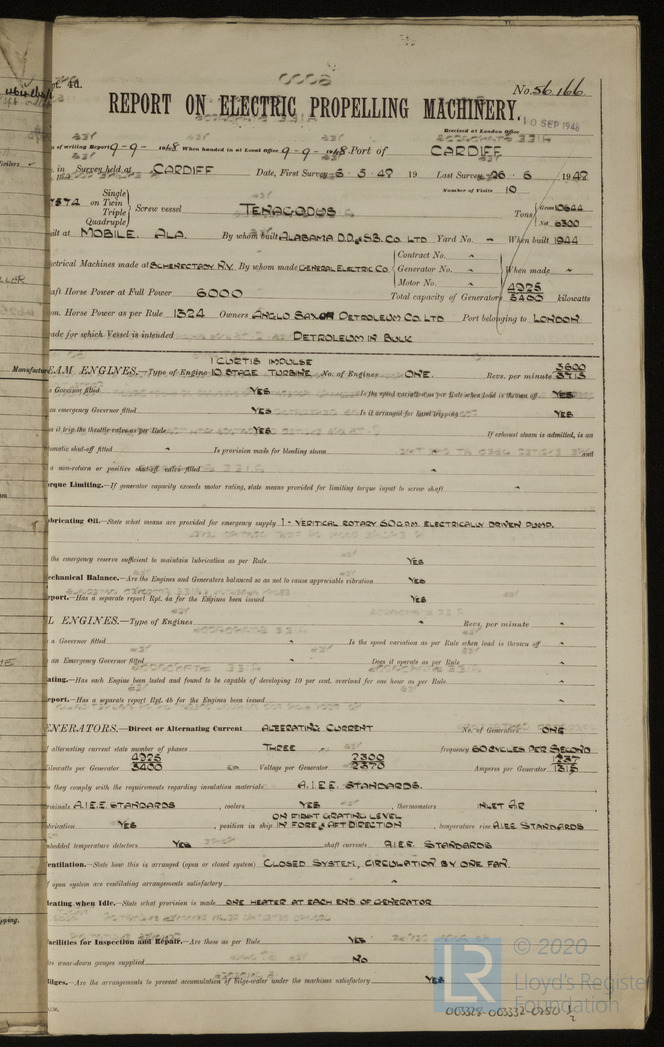 pt. 4d.
No. 56,166
REPORT ON ELECTRIC PROPELLING MACHINERY.
10 SEP 1948
Received at London Office
of writing Report 9-9-1948 When handed in at Local Office 9-9-1948 Port of CARDIFF
in Survey held at CARDIFF Date, First Survey 6.5.48 19 Last Survey 26.6 1948
Number of Visits 10
7574 on Single Twin Triple Quadruple Screw vessel TENAGODUS Tons Gross 10644 Net 6300
ilt at MOBILE. ALA. By whom built ALABAMA D.D. & S.B. Co. LTD Yard No. - When built 1944
ectrical Machines made at SCHENECTADY N.Y. By whom made GENERAL ELECTRIC Co. Contract No. Generator No. Motor No. When made
aft Horse Power at Full Power 6000 Total capacity of Generators 4925 5400 kilowatts
om. Horse Power as per Rule 1324 Owners ANGLO SAXON PETROLEUM CO. LTD Port belonging to LONDON
ade for which Vessel is intended PETROLEUM IN BULK
EAM ENGINES.—Type of Engine 1 CURTIS IMPULSE 10 STAGE TURBINE No. of Engines ONE. Revs. per minute 3600 3715
a Governor fitted YES Is the speed variation as per Rule when load is thrown off YES
an emergency Governor fitted YES Is it arranged for hand tripping YES
es it trip the throttle valve as per Rule YES If exhaust steam is admitted, is an
tomatic shut-off fitted Is provision made for bleeding steam and
a non-return or positive shut-off valve fitted
orque Limiting.—If generator capacity exceeds motor rating, state means provided for limiting torque input to screw shaft
ubricating Oil.—State what means are provided for emergency supply 1 - VERTICAL ROTARY 50 G.P.M. ELECTRICALLY DRIVEN PUMP.
the emergency reserve sufficient to maintain lubrication as per Rule YES
echanical Balance.—Are the Engines and Generators balanced so as not to cause appreciable vibration YES
eport.—Has a separate report Rpt. 4a for the Engines been issued YES
L ENGINES.—Type of Engines Revs. per minute
a Governor fitted Is the speed variation as per Rule when load is thrown off
an Emergency Governor fitted Does it operate as per Rule
ating.—Has each Engine been tested and found to be capable of developing 10 per cent. overload for one hour as per Rule
eport.—Has a separate report Rpt. 4b for the Engines been issued
ENERATORS.—Direct or Alternating Current ALTERATING CURRENT No. of Generators ONE
alternating current state number of phases THREE frequency 60 CYCLES PER SECOND
ilowatts per Generator 4925 5400 Voltage per Generator 2300 2370 Amperes per Generator 1237 1315
they comply with the requirements regarding insulation materials A.I.E.E. STANDARDS.
rminals A.I.E.E. STANDARDS, coolers YES, thermometers INLET AIR
brication YES, position in ship ON FIRST GRATING LEVEL IN FORE & AFT DIRECTION, temperature rise AIEE STANDARDS
bedded temperature detectors YES shaft currents A.I.E.E. STANDARDS
entilation.—State how this is arranged (open or closed system) CLOSED SYSTEM, CIRCULATION BY ONE FAN.
open system are ventilating arrangements satisfactory
eating when Idle.—State what provision is made ONE HEATER AT EACH END OF GENERATOR
acilities for Inspection and Repair.—Are these as per Rule YES
re wear-down gauges supplied No
ilges.—Are the arrangements to prevent accumulation of bilge-water under the machines satisfactory YES
LR © 2020 Lloyd's Register Foundation
003328-003332-0250 1/2